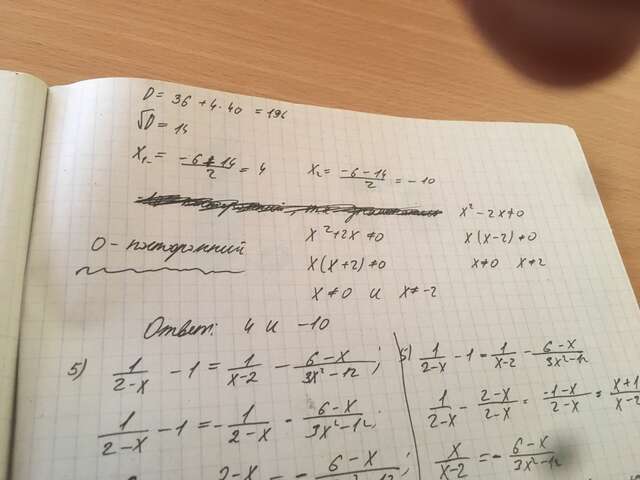 D = 36 + 4·40 = 196
√D = 14
x₁ = (-6+14)/2 = 4 x₂ = (-6-14)/2 = -10
x² - 2x ≠ 0
0 - посторонний x² + 2x ≠ 0 x(x-2) ≠ 0
x(x+2) ≠ 0 x ≠ 0 x ≠ 2
x ≠ 0 и x ≠ -2
Ответ: 4 и -10
5) 1/(2-x) - 1 = 1/(x-2) - (6-x)/(3x²-12);
1/(2-x) - 1 = -1/(2-x) - (6-x)/(3x²-12);
2-x = - (6-x)/ -12;
5) 1/(2-x) - 1 = 1/(x-2) - (6-x)/(3x²-12)
1/(2-x) - (2-x)/(2-x) = (-1-x)/(2-x) = (x+1)/(x-2)
x/(x-2) = - (6-x)/(3x²-12)